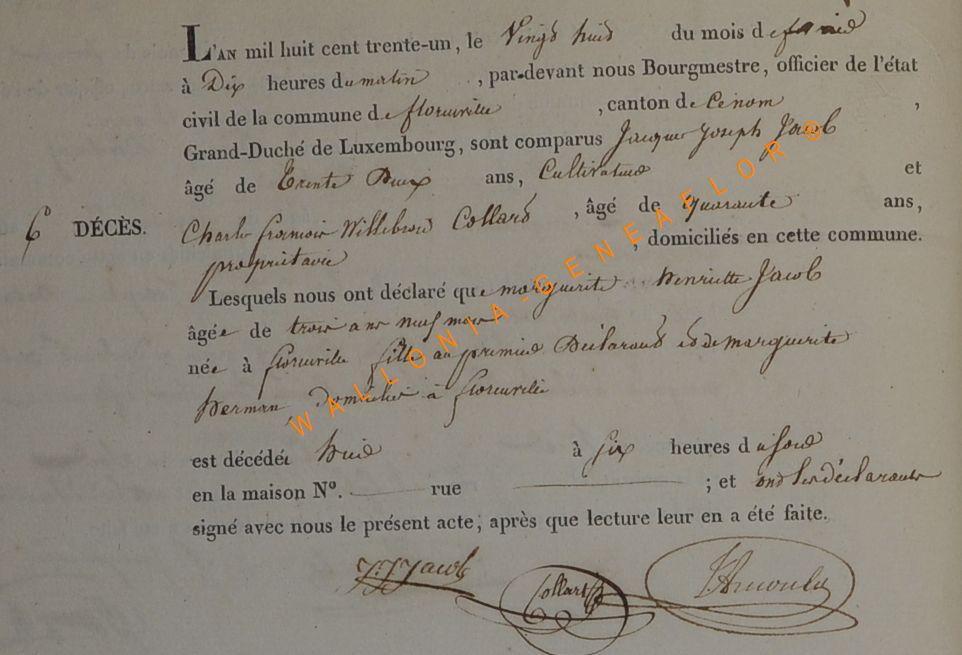 L'AN mil huit cent trente-un, le Vingt huit du mois de fevrier
à Dix heures du matin , par-devant nous Bourgmestre, officier de l'état
civil de la commune de florenville , canton de
Grand-Duché de Luxembourg, sont comparus Jacques Joseph Jacob
âgé de Trente Deux ans, Cultivateur et
6 DÉCÈS. Charles françois Willebrord Collard , âgé de quarante ans,
propriétaire , domiciliés en cette commune.
Lesquels nous ont déclaré que marguerite henriette Jacob
âgée de trois ans neuf mois
née à florenville fille au premier Déclarant et de marguerite
herman, domiciliés à florenville
est décédée hier à six heures du soir
en la maison N°. rue ; et ont les déclarants
signé avec nous le présent acte, après que lecture leur en a été faite.
J:J Jacob Collard
WALLONIA-GENEAFLOR@